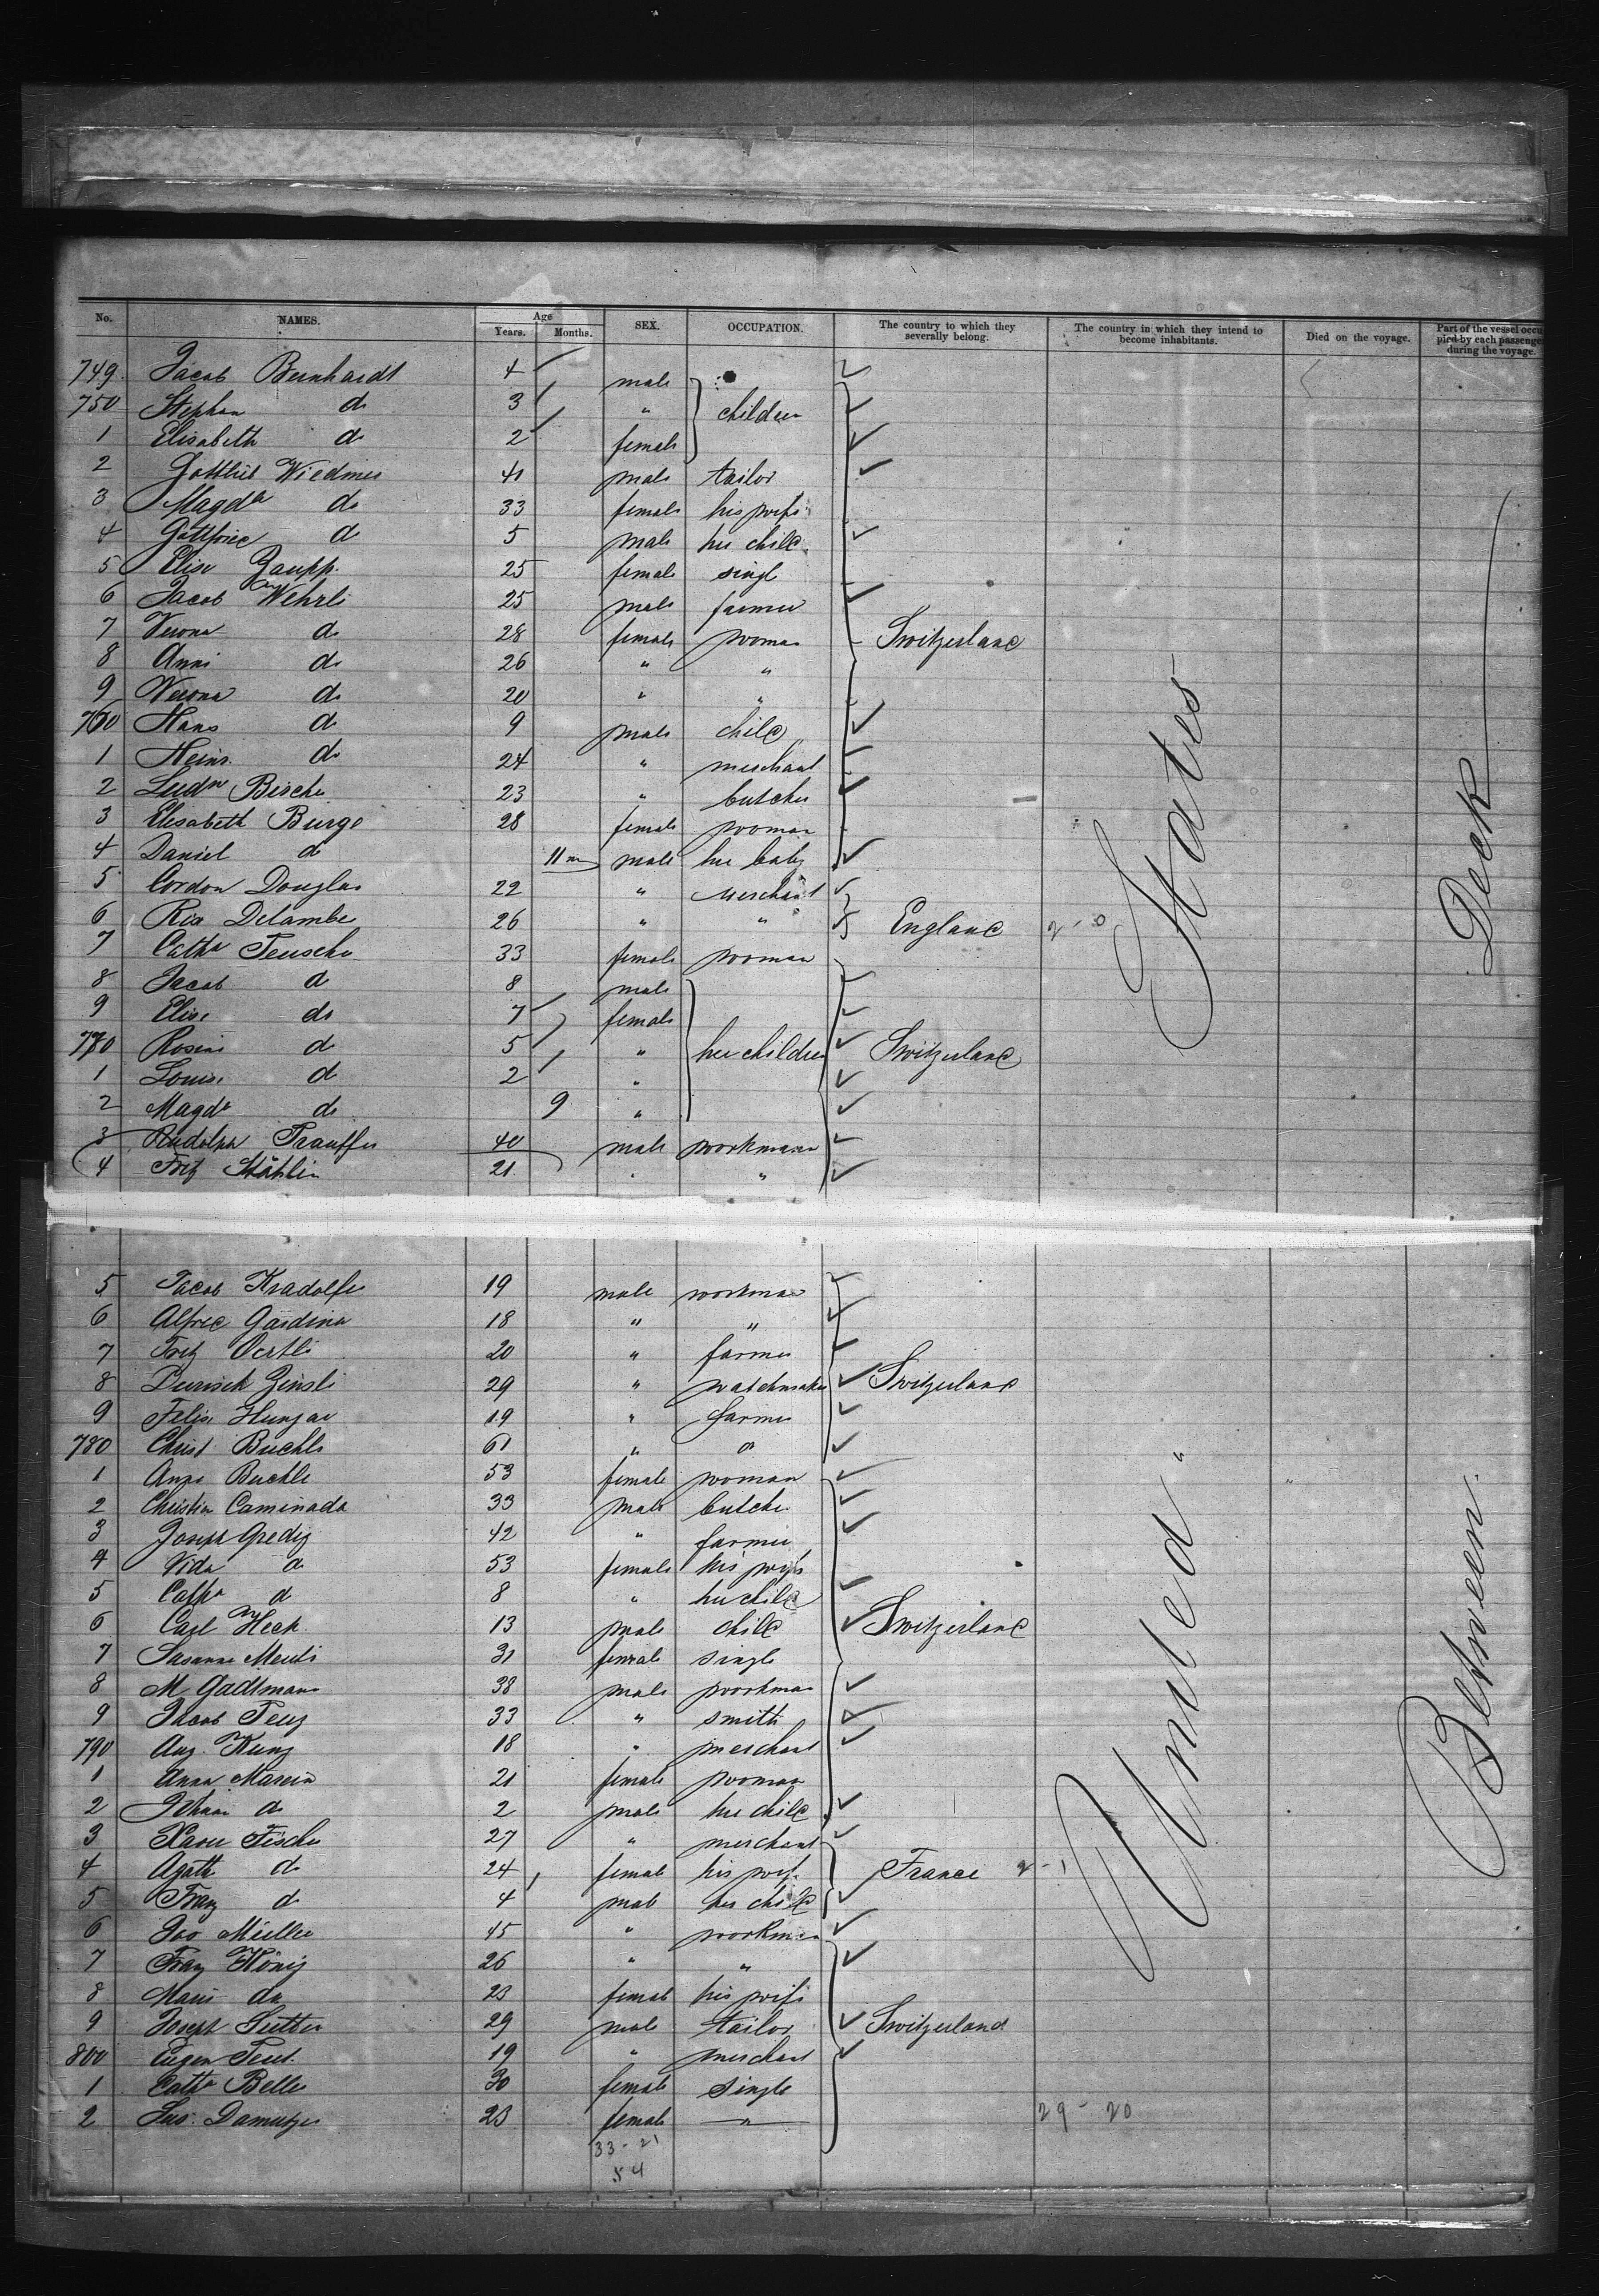 No. NAMES. Age Years. Months. SEX. OCCUPATION. The country to which they severally belong. The country in which they intend to become inhabitants. Died on the voyage. Part of the vessel occupied by each passenger during the voyage.
749. Jacob Bernhardt 4 male
750 Stephan do 3 " children
1 Elisabeth do 2 female
2 Gottlieb Wiedmer 41 male tailor
3 Magda do 33 female his wife
4 Gottfried do 5 male her child
5 Elise Zaupp. 25 female single
6 Jacob Wehrli 25 male farmer
7 Verona do 28 female woman Switzerland
8 Anni do 26 " "
9 Verona do 20 " "
760 Hans do 9 male child
1 Heinr. do 24 " merchant
2 Ludw Birche 23 " butcher
3 Elisabeth Burge 28 female woman
4 Daniel do 11 m male her baby
5 Cordon Douglas 22 " merchant
6 Rix Delambe 26 " " England 2-0
7 Catha Teusche 33 female woman
8 Jacob do 8 male
9 Elise do 7 female
770 Rosina do 5 " her children Switzerland
1 Louise do 2 "
2 Magda do 9 "
3 Rudolph Trauffer 40 male workmann
4 Fritz Stählin 21 " "
5 Jacob Kradolfer 19 male workman
6 Alfred Gardina 18 " "
7 Fritz Oertli 20 " farmer
8 Durisch Zinsli 29 " watchmaker Switzerland
9 Felix Hungar 19 " farmer
780 Christ Buchli 61 " do
1 Anna Buchli 53 female woman
2 Christian Caminada 33 male butcher
3 Joseph Gredig 42 " farmer
4 Vida do 53 female his wife
5 Catha do 8 " her child
6 Carl Heck 13 male child Switzerland
7 Susanna Meuli 31 female single
8 M Gadtmann 38 male workman
9 Jacob Teuz 33 " smith
790 Aug. Kunz 18 " merchant
1 Anna Marcin 21 female woman
2 Johann do 2 male her child
3 Xaver Fischer 27 " merchant
4 Agath do 24 female his wife France 2-1
5 Franz do 4 male her child
6 Joo Müller 45 " workman
7 Franz König 26 " "
8 Marie do 23 female his wife
9 Joseph Sutter 29 male tailor Switzerland
800 Eugen Teut. 19 " merchant
1 Catha Beller 30 female single
2 Sus. Damutzer 23 female " 29-20
33-21
54
United States
Between Deck